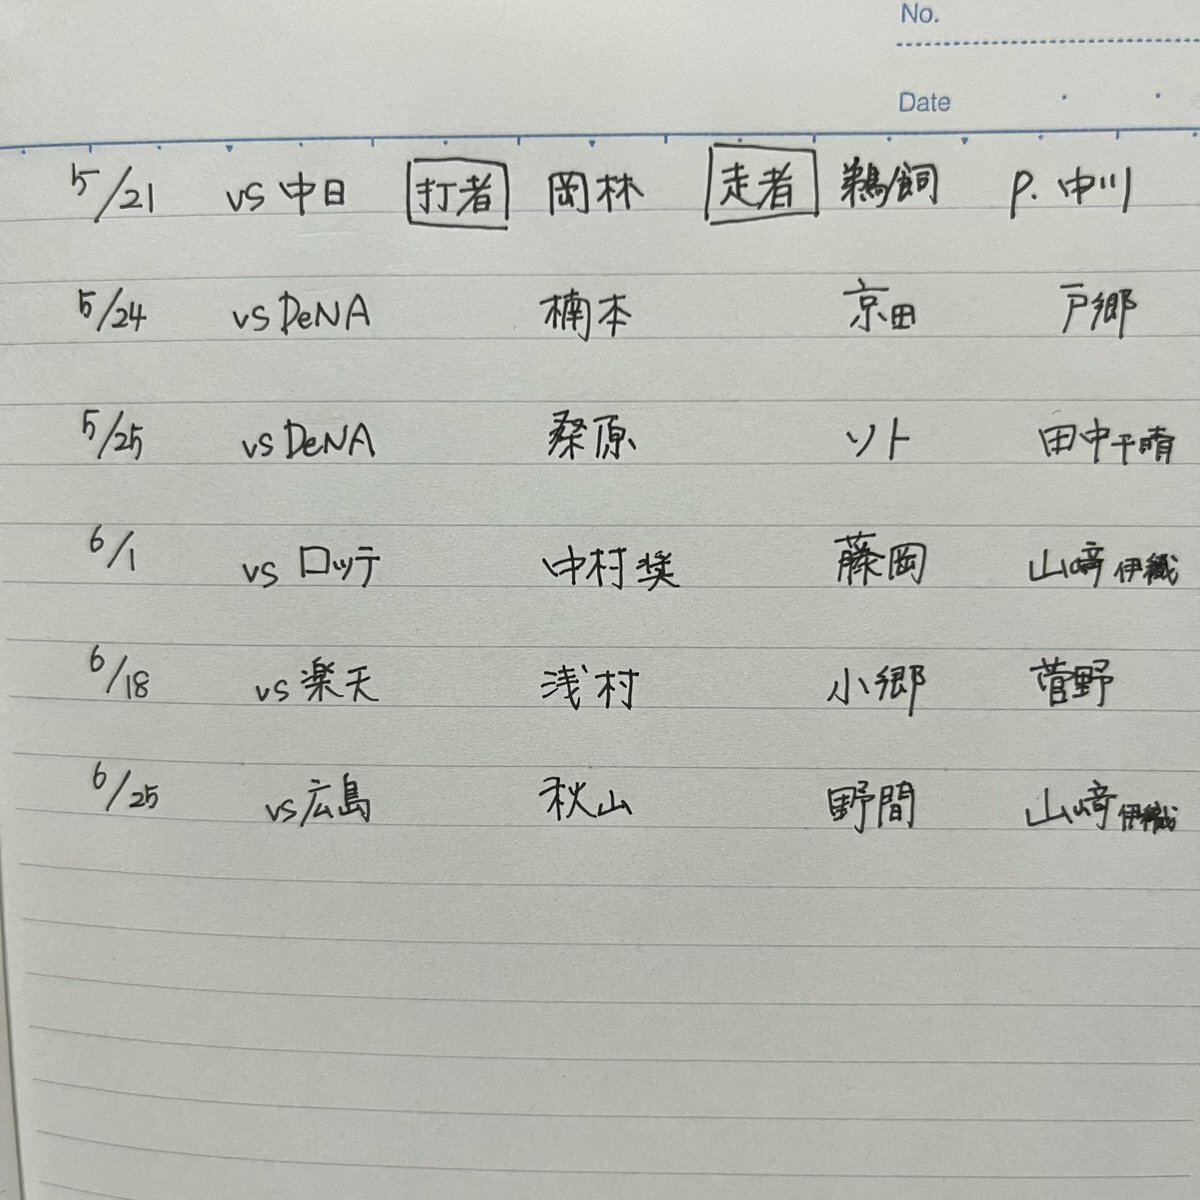 No.
Date
5/21 vs 中日 打者 岡林 走者 鵜飼 P. 中川
5/24 vs DeNA 楠本 京田 戸郷
5/25 vs DeNA 桑原 ソト 田中千晴
6/1 vs ロッテ 中村奨 藤岡 山﨑伊織
6/18 vs 楽天 浅村 小郷 菅野
6/25 vs 広島 秋山 野間 山﨑伊織